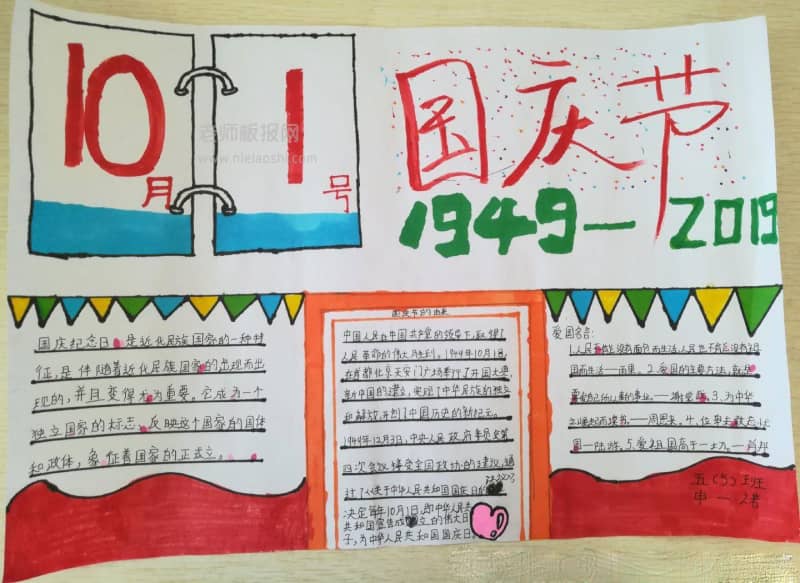 10月
1号
老师板报网
国庆节
1949—2019
国庆节的由来
国庆纪念日是近代民族国家的一种特
征,是伴随着近代民族国家的出现而出
现的,并且变得尤为重要。它成为一个
独立国家的标志,反映这个国家的国体
和政体,象征着国家的正式立。
中国人民在中国共产党的领导下,取得了
人民革命的伟大胜利。1949年10月1日,
在首都北京天安门广场举行了开国大典
新中国的建立,实现了中华民族的独立
和解放,开创了中国历史的新纪元。
1949年12月3日,中央人民政府委员会第
四次会议接受全国政协的建议,通
过了《关于中华人民共和国国庆日的
决定每年10月1日,即中华人民共
共和国宣告成立的伟大日
子,为中华人民共和国国庆日。
爱国名言:
1.人民不能没有面包而生活,人民也不能没有祖
国而生活——雨果。2.爱国的主要方法,就是
要爱自己所从事的事业——谢觉哉。3.为中
华之崛起而读书——周恩来。4.位卑未敢忘忧
国——陆游。5.
五(5)班
申一